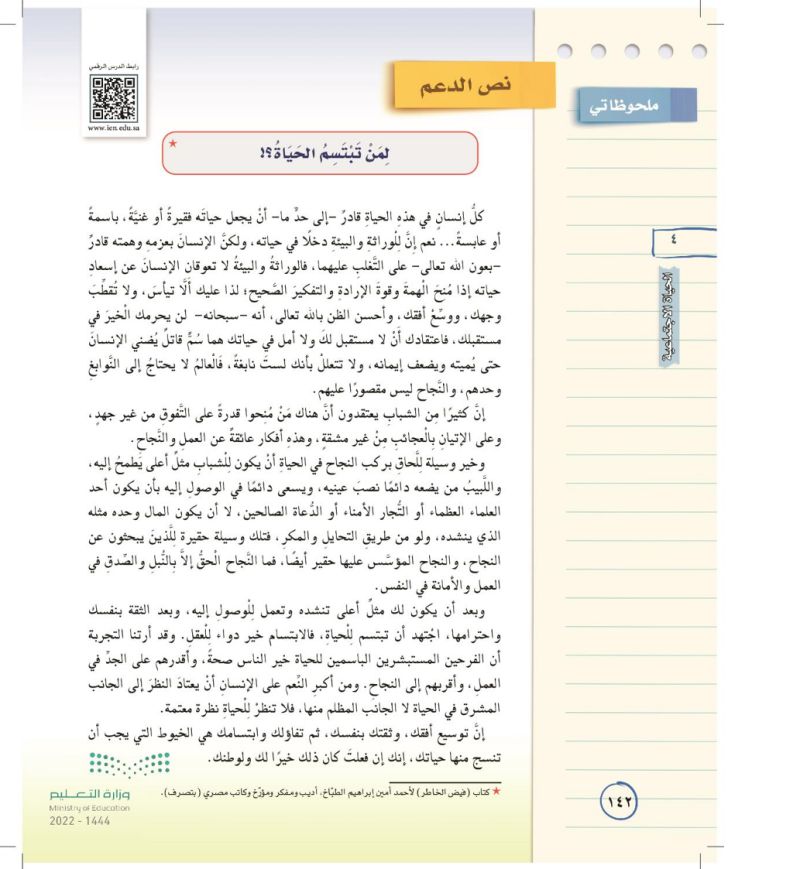 رابط الدرس الرقمي
www.ien.edu.sa
نص الدعم
ملحوظاتي
لِمَنْ تَبْتَسِمُ الحَيَاةُ؟!
★
كلُّ إنسانٍ في هذهِ الحياةِ قادرٌ –إلى حدٍّ ما– أنْ يجعل حياتَه فقيرةً أو غنيَّةً، باسمةً
أو عابسةً... نعم إنَّ لِلْوراثةِ والبيئةِ دخلًا في حياته، ولكنَّ الإنسانَ بعزمهِ وهمته قادرٌ
–بعون الله تعالى– على التَّغلبِ عليهما، فالوراثةُ والبيئة لا تعوقان الإنسانَ عن إسعادِ
حياته إذا مُنحَ الْهمةَ وقوةَ الإرادةِ والتفكيرَ الصَّحيح؛ لذا عليك ألَّا تيأسَ، ولا تُقطِّبَ
وجهك، ووسِّعْ أفقك، وأحسن الظن بالله تعالى، أنه –سبحانه– لن يحرمك الْخيرَ في
مستقبلك، فاعتقادك أنْ لا مستقبل لكَ ولا أمل في حياتك هما سُمٌّ قاتلٌ يُضني الإنسانَ
حتى يُميته ويضعف إيمانه، ولا تتعللْ بأنك لستَ نابغةً، فَالْعالمُ لا يحتاجُ إلى النَّوابغِ
وحدهم، والنَّجاح ليس مقصورًا عليهم.
إنَّ كثيرًا مِن الشبابِ يعتقدون أنَّ هناك مَنْ مُنحوا قدرةً على التَّفوقِ من غير جهدٍ،
وعلى الإتيانِ بِالْعجائبِ مِنْ غير مشقةٍ، وهذهِ أفكار عائقةٌ عن العملِ والنَّجاحِ.
وخير وسيلة لِلَّحاقِ بركب النجاح في الحياةِ أنْ يكون لِلْشبابِ مثلٌ أعلى يَطمحُ إليه،
واللَّبيبُ من يضعه دائمًا نصبَ عينيه، ويسعى دائمًا في الوصولِ إليه بأن يكون أحد
العلماء العظماء أو التُّجار الأمناء أو الدُّعاة الصالحين، لا أن يكون المال وحده مثله
الذي ينشده، ولو من طريقِ التحايلِ والمكرِ، فتلك وسيلة حقيرة لِلَّذينَ يبحثون عن
النجاح، والنجاح المؤسَّس عليها حقير أيضًا، فما النَّجاح الْحقُّ إلاَّ بِالنُّبلِ والصِّدقِ في
العمل والأمانة في النفس.
وبعد أن يكون لك مثلٌ أعلى تنشده وتعمل لِلْوصولِ إليه، وبعد الثقة بنفسك
واحترامها، اجْتهد أن تبتسم لِلْحياةِ، فالابتسام خير دواء لِلْعقلِ. وقد أرتنا التجربة
أن الفرحين المستبشرين الباسمين للحياة خير الناس صحةً، وأقدرهم على الجدِّ في
العملِ، وأقربهم إلى النجاحِ. ومن أكبرِ النِّعم على الإنسانِ أنْ يعتادَ النظرَ إلى الجانب
المشرق في الحياة لا الجانب المظلم منها، فلا تنظرْ لِلْحياةِ نظرة معتمة.
إنَّ توسيع أفقك، وثقتك بنفسك، ثم تفاؤلك وابتسامك هي الخيوط التي يجب أن
تنسج منها حياتك، إنك إن فعلتَ كان ذلك خيرًا لك ولوطنك.
★ كتاب (فيض الخاطر) لأحمد أمين إبراهيم الطبّاخ، أديب ومفكر ومؤرّخ وكاتب مصري (بتصرف).
٤
الحياة الاجتماعية
وزارة التعليم
Ministry of Education
2022 - 1444
١٤٢